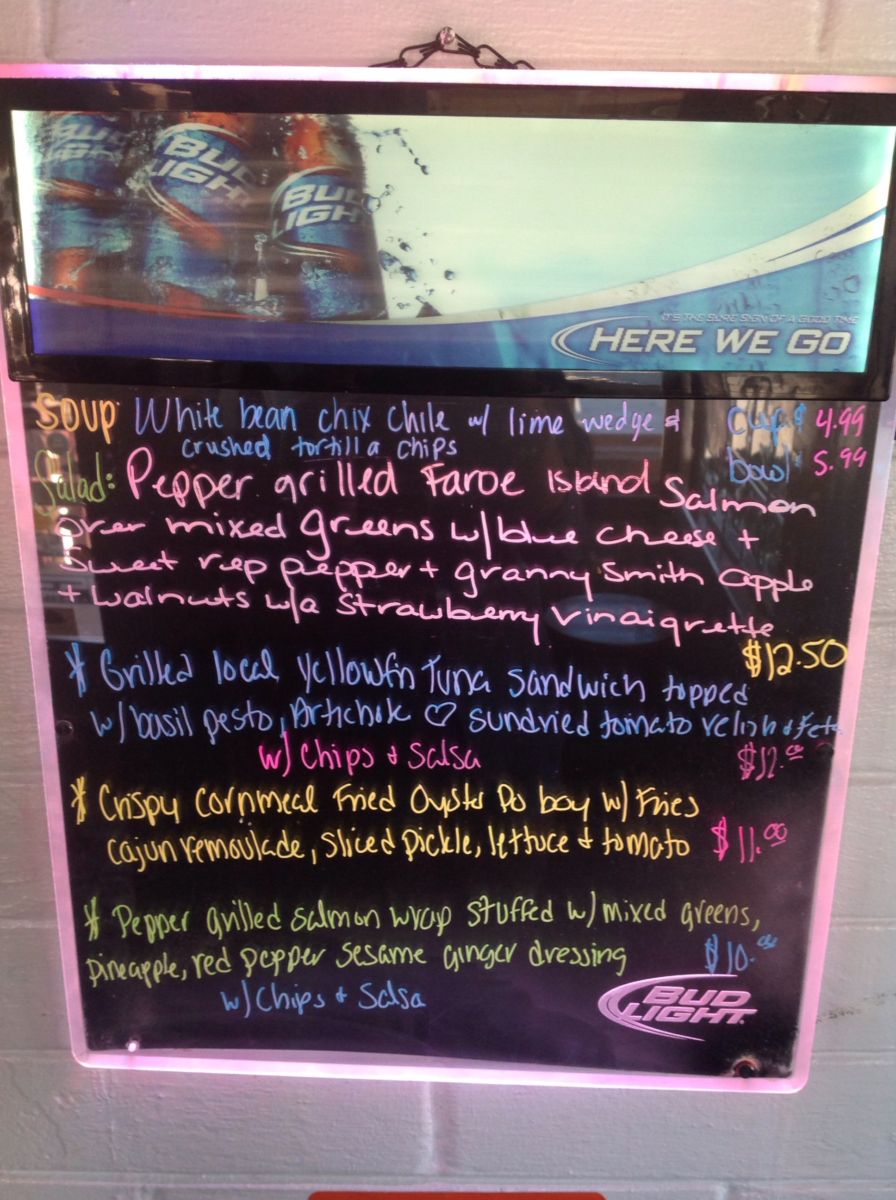 BUD LIGHT
BUD LIGHT
BUD LIGHT
IT'S THE SURE SIGN OF A GOOD TIME
HERE WE GO
SOUP White bean chix chile w/ lime wedge & cup $ 4.99
crushed tortilla chips bowl $ 5.99
Salad: Pepper grilled Faroe Island Salmon
over mixed greens w/ blue cheese +
Sweet rep pepper + granny Smith apple
+ walnuts w/a Strawberry Vinaigrette
$12.50
* Grilled local yellowfin Tuna sandwich topped
w/ basil pesto, Artichok ♡ sundried tomato relish & Feta
w/ Chips & Salsa $12.00
* Crispy Cornmeal Fried Oyster Po boy w/ Fries
cajun remoulade, sliced pickle, lettuce & tomato $11.00
* Pepper grilled salmon wrap stuffed w/ mixed greens,
pineapple, red pepper sesame ginger dressing $10.00
w/ Chips & Salsa
BUD LIGHT